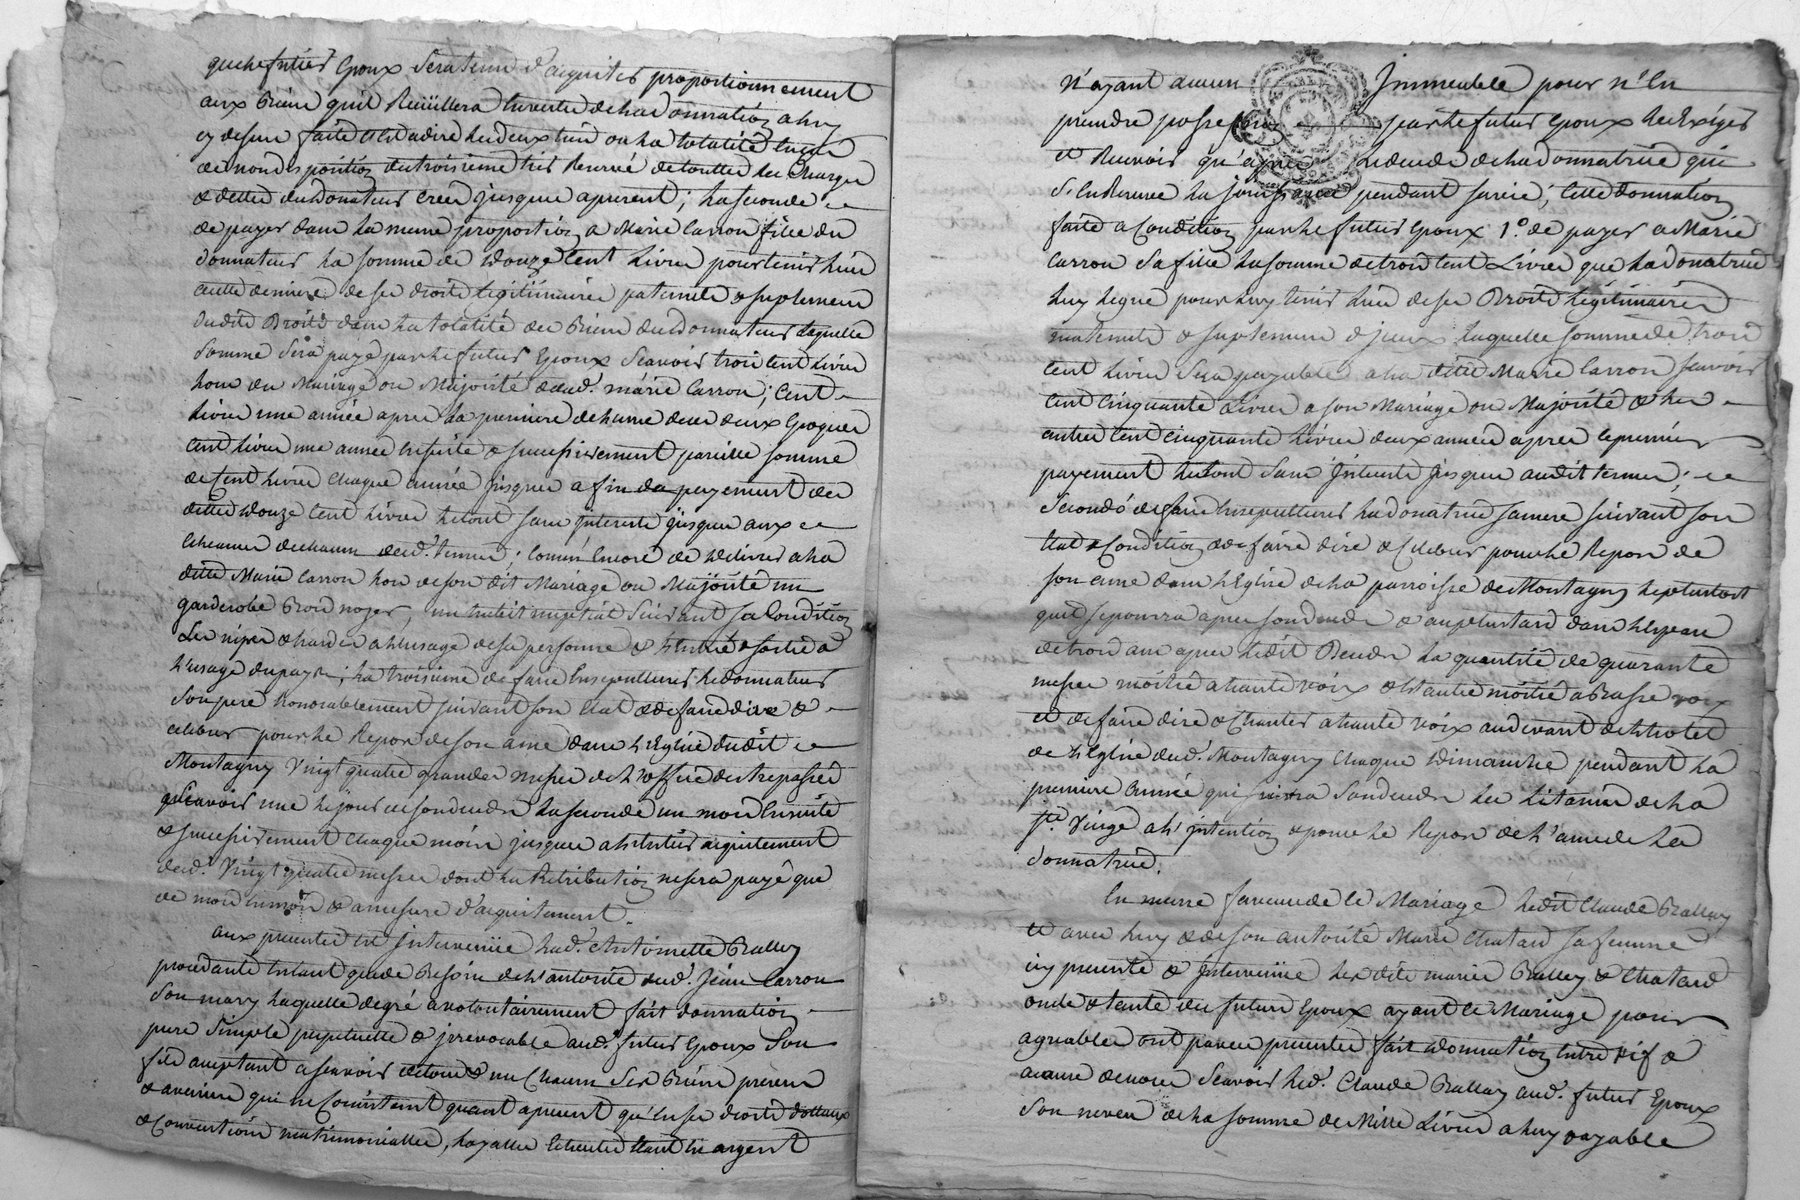 que le futur Epoux sera tenu d'aquiter proportionnement
aux biens qu'il Reuüllera en vertu de la donnation a luy
cy dessus faite c'est a dire les deux tiers ou la totalité en cas
de non disposition du troisieme tier Reservé de touttes les Charges
& dettes du donateur creés jusques apresent; la seconde
de payer dans la meme proportion a Marie Carron fille du
donnateur la somme de douze Cent Livres pour tenir lieu
a cette derniere de ses droits legitimaires paternels & suplement
dudits Droits dans la totalité des biens du donnateur laquelle
somme sera payé par le futur Epoux Scavoir trois Cent Livres
lors du Mariage ou Majorité de lad.e marie Carron; Cent
Livres une année apres la premiere dehume des deux Epoques
Cent Livres une année ensuite & successivement pareille somme
de Cent Livres Chaque année jusques a fin de payement des
dittes douze Cent Livres le tout sans interets jusques aux
Echeances de chacun desd.s termes; Comm' Encore de delivrer a la
ditte Marie Carron lors de son dit Mariage ou Majorité un
garderobe Bois noyer, un trabit nuptial Suivant sa Condition
Les nipes & hardes a l'usage de sa personne & l'Entrée & sortie a
l'usage du pays; la troisieme de faire Ensepulturer le donnateur
Son pere honorablement suivant son Etat & de faire dire &
celebrer pour le Repos de son ame dans l'Eglise dudit
Montagny Vingt quatre grandes messes de l'office des trepassés
Scavoir une le jour de son deces la seconde un mois Ensuite
& successivement Chaque mois jusques a l'entier aquitement
desd.s Vingt quatre messes dont la Retribution ne sera payé que
de mois en mois & a mesure d'aquitement.
aux presentes est jntervenüe lad.e Antoinette Ballay
procedante Entant que de Besoin de l'autorité dud.t Jean Carron
Son mary laquelle de gré a volontairement fait donnation
pure simple perpetuelle & jrrevocable aud.t futur Epoux Son
fils aceptant a scavoir de tous & un Chacun Ses Biens presens
& avenirs qui ne Consistent quant apresent qu'en ses droits dottaux
& Conventions matrimonialles, laquelle Etant en argent
n'ayant aucun Jmmeuble pour n'En
prendre possession par le futur Epoux les Exiger
et Recevoir qu'apres le deces de la donnatrice qui
S'En Reserve la jouissance pendant sa vie; Cette donnation
faite a Condition par le futur Epoux 1.o de payer a Marie
Carron Sa fille la somme de trois Cent Livres que la donatrice
luy legue pour luy tenir lieu de ses Droits legitimaires
maternels & suplement d'jceux laquelle somme de trois
Cent Livres Sera payable a la ditte Marie Carron scavoir
Cent Cinquante Livres a son Mariage ou Majorité & les
autres Cent Cinquante Livres deux années apres le premier
payement le tout Sans jnterets jusques audit terme;
Secondo de faire Ensepulturer la donatrice sa mere suivant son
Etat & Condition & de faire dire & Celebrer pour le Repos de
son ame dans l'Eglise de la parroisse de Montagny le plustost
que se pourra apres son deces & au plus tard dans l'Espace
de trois ans apres ledit Deces la quantité de quarante
messes moitié a haute voix & l'autre moitié a Basse voix
et de faire dire & Chanter a haute Voix au devant de l'hotel
de l'Eglise dud.t Montagny Chaque Dimanche pendant la
premiere année qui suivra son deces les Litanies de la
s.te Vierge a l'jntention & pour le Repos de l'ame de la
donnatrice.
En meme faveur de ce Mariage ledit Claude Ballay
et avec luy & de son autorité Marie Chatard sa femme
icy presente & jntervenüe les dits mariés Ballay & Chatard
oncle & tante du futur Epoux ayant ce Mariage pour
agreable ont par ces presentes fait donnation entre vif &
a cause de noces Scavoir led.t Claude Ballay aud.t futur Epoux
Son neveu de la somme de Mille Livres a luy payable